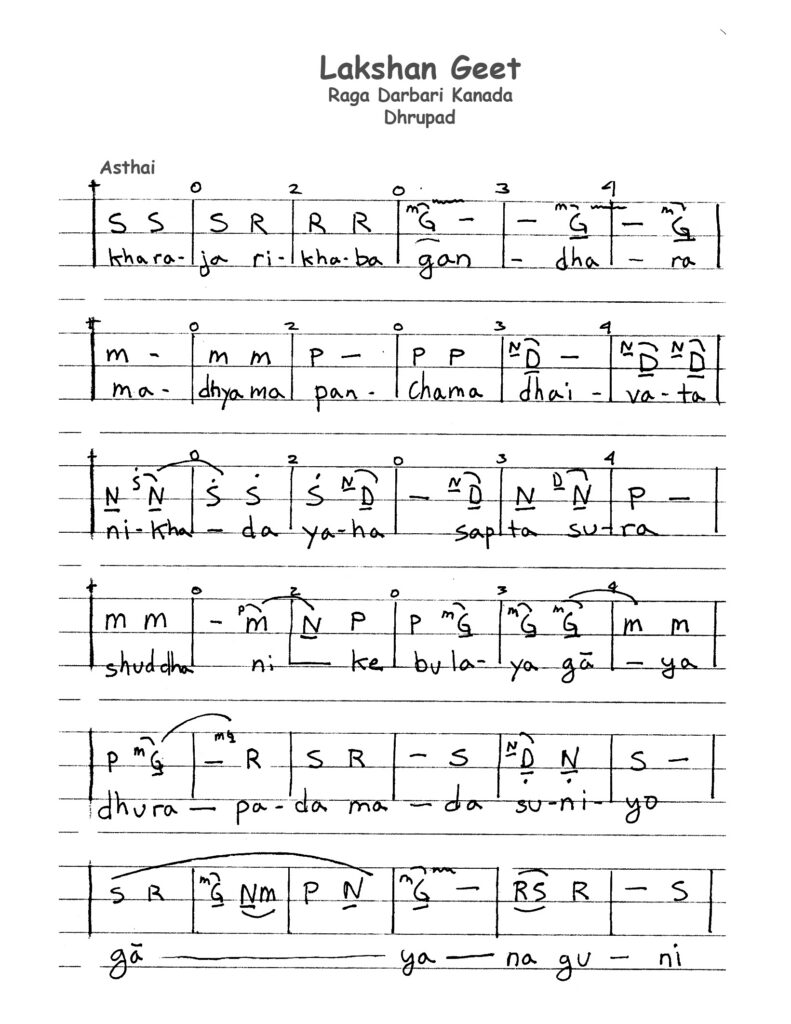 Lakshan Geet
Raga Darbari Kanada
Dhrupad
Asthai
+ 0 2 0 3 4
S S | S R | R R | mG̲ – | – mG̲ | – mG̲
khara- ja ri- kha-ba gan - dha - ra
+ 0 2 0 3 4
m - | m m | P – | P P | N̲D̲ – | N̲D̲ N̲D̲
ma- dhyama pan- chama dhai - va-ta
+ 0 2 0 3 4
N̲ ṠN̲ | Ṡ Ṡ | Ṡ N̲D̲ | – N̲D̲ | N̲ DN̲ | P –
ni-kha - da ya-ha sap ta su-ra
+ 0 2 0 3 4
m m | - Pm | N̲ P | P mG̲ | mG̲ mG̲ | m m
shuddha ni — ke bula- ya gā - ya
P mG̲ | – mG̲R | S R | – S | N̲Ḍ̲ Ṇ̲ | S –
dhura — pa-da ma - da su-ni- yo
S R | mG̲ N̲m | P N̲ | mG̲ – | RS R | – S
gā ——— ya — na gu – ni